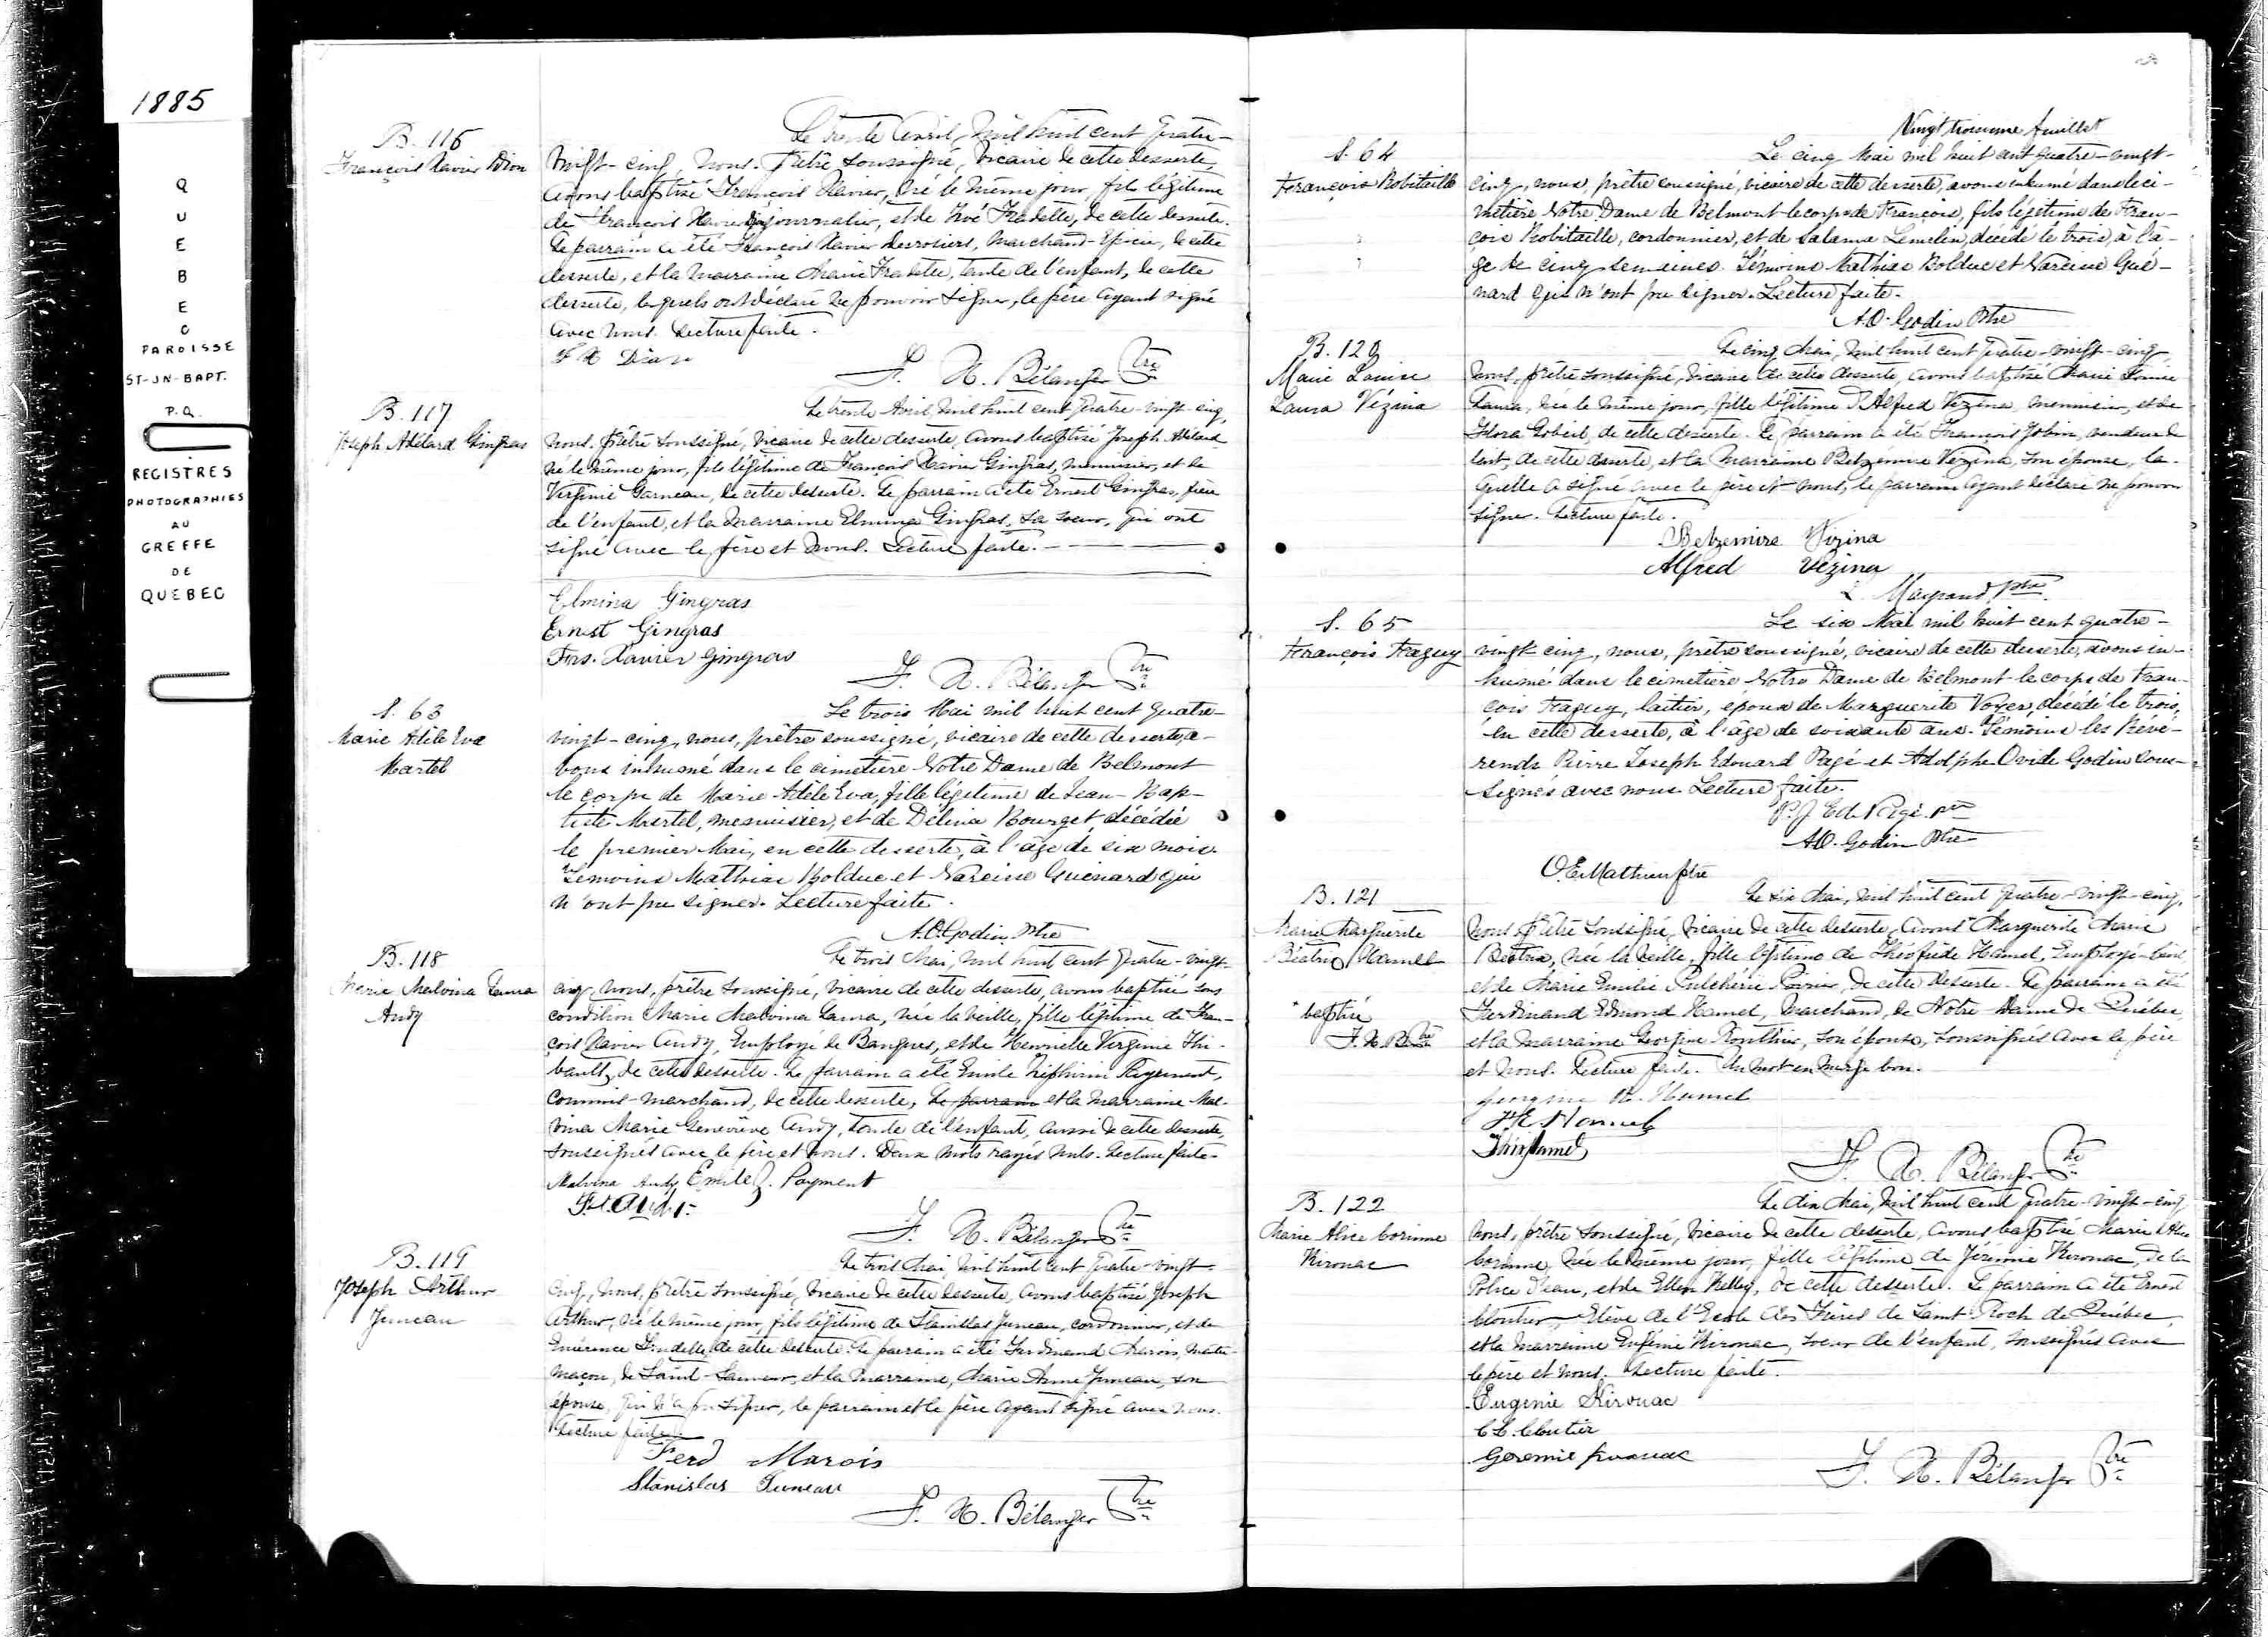 1885
QUEBEC
PAROISSE
ST-JN-BAPT.
P.Q.
REGISTRES
PHOTOGRAPHIES
AU
GREFFE
DE
QUEBEC
B. 116
François Xavier Dion
Le trente Avril, mil huit cent quatre-
vingt-cinq, nous, prêtre soussigné, vicaire de cette desserte,
avons baptisé François Xavier, né le même jour, fils légitime
de François Xavier Dion journalier, et de Zoé Fradette, de cette desserte.
Le parrain a été François Xavier Desrosiers, marchand-épicier, de cette
desserte, et la marraine Marie Fradette, tante de l'enfant, de cette
desserte, lesquels ont déclaré ne pouvoir signer, le père ayant signé
avec nous. Lecture faite.
F X Dion
F. X. Bélanger Ptre
B. 117
Joseph Adélard Gingras
Le trente Avril, mil huit cent quatre-vingt-cinq,
nous, prêtre soussigné, vicaire de cette desserte, avons baptisé Joseph Adélard
né le même jour, fils légitime de François Xavier Gingras, menuisier, et de
Virginie Garneau, de cette desserte. Le parrain a été Ernest Gingras, frère
de l'enfant, et la marraine Elmina Gingras, sa soeur, qui ont
signé avec le père et nous. Lecture faite.
Elmina Gingras
Ernest Gingras
Frs. Xavier Gingras
F. X. Bélanger Ptre
S. 63
Marie Adèle Eva
Martel
Le trois Mai mil huit cent quatre-
vingt-cinq, nous, prêtre soussigné, vicaire de cette desserte, a-
vons inhumé dans le cimetière Notre Dame de Belmont
le corps de Marie Adèle Eva, fille légitime de Jean-Bap-
tiste Martel, menuisier, et de Délina Bourget, décédée
le premier Mai, en cette desserte, à l'âge de six mois.
Témoins Mathias Bolduc et Narcisse Guénard qui
n'ont pu signer. Lecture faite.
A.O. Godin Ptre
B. 118
Marie Malvina Laura
Audy
Le trois Mai, mil huit cent quatre-vingt-
cinq, nous, prêtre soussigné, vicaire de cette desserte, avons baptisé sous
condition Marie Malvina Laura, née la veille, fille légitime de Fran-
çois Xavier Audy, Employé de Banques, et de Henriette Virginie Thi-
bault, de cette desserte. Le parrain a été Emile Zéphirin Payment,
Commis-marchand, de cette desserte, le parrain et la marraine Mal-
vina Marie Geneviève Audy, tante de l'enfant, aussi de cette desserte,
soussignés avec le père et nous. Deux mots rayés nuls. Lecture faite.
Malvina Audy Emile Z. Payment
F. X. Audy
F. X. Bélanger Ptre
B. 119
Joseph Arthur
Juneau
Le trois Mai, mil huit cent quatre-vingt-
cinq, nous, prêtre soussigné, vicaire de cette desserte, avons baptisé Joseph
Arthur, né le même jour, fils légitime de Stanislas Juneau, cordonnier, et de
de cette desserte. Le parrain a été Ferdinand Marois, maître-
maçon, de Saint-Sauveur, et la marraine, Marie Anne Juneau, son
épouse, qui n'a pu signer, le parrain et le père ayant signé avec nous.
Lecture faite.
Ferd Marois
Stanislas Juneau
F. X. Bélanger Ptre
Vingt troisième feuillet
S. 64
François Robitaille
Le cinq Mai mil huit cent quatre-vingt-
cinq, nous, prêtre soussigné, vicaire de cette desserte, avons inhumé dans le ci-
metière Notre Dame de Belmont le corps de François, fils légitime de Fran-
çois Robitaille, cordonnier, et de Salama Lemelin, décédé le trois, à l'â-
ge de cinq semaines. Témoins Mathias Bolduc et Narcisse Gué-
nard qui n'ont pu signer. Lecture faite.
A.O. Godin Ptre
B. 120
Marie Louise
Laura Vézina
Le cinq Mai, mil huit cent quatre-vingt-cinq
nous, prêtre soussigné, vicaire de cette desserte, avons baptisé Marie Louise
Laura, née le même jour, fille légitime d'Alfred Vézina, menuisier, et de
Flora Gobeil, de cette desserte. Le parrain a été François Jobin, vendeur de
lait, de cette desserte, et la marraine Betzemire Vézina, son épouse, la-
quelle a signé avec le père et nous, le parrain ayant déclaré ne pouvoir
signer. Lecture faite.
Betzemire Vézina
Alfred Vézina
L. Mayrand ptre
S. 65
François Traguy
Le six Mai mil huit cent quatre-
vingt cinq, nous, prêtre soussigné, vicaire de cette desserte, avons in-
humé dans le cimetière Notre Dame de Belmont le corps de Fran-
çois Traguy, laitier, époux de Marguerite Voyer, décédé le trois,
en cette desserte, à l'âge de soixante ans. Témoins les Révé-
rends Pierre Joseph Edouard Pagé et Adolphe Ovide Godin sous-
signés avec nous. Lecture faite.
P. J. Ed. Pagé ptre
A.O. Godin Ptre
O.E. Mathieu ptre
B. 121
Marie Marguerite
Béatrix Hamel
"baptisé
F. X. B. Ptre
Le six Mai, mil huit cent quatre-vingt-cinq,
nous, prêtre soussigné, vicaire de cette desserte, avons " Marguerite Marie
Béatrix, née la veille, fille légitime de Théofride Hamel, Employé-civil,
et de Marie Emilie Pulchérie Poirier, de cette desserte. Le parrain a été
Ferdinand Edmond Hamel, Marchand, de Notre Dame de Québec
et la marraine Georgine Routhier, son épouse, soussignés avec le père
et nous. Lecture faite. Un mot en marge bon.
Georgine R. Hamel
F. E. Hamel
F. X. Bélanger Ptre
B. 122
Marie Alice Corinne
Kirouac
Le dix Mai, mil huit cent quatre-vingt-cinq
nous, prêtre soussigné, vicaire de cette desserte, avons baptisé Marie Alice
Corinne, née le même jour, fille légitime de Jérémie Kirouac, de la
Police d'eau, et de Ellen Kelley, de cette desserte. Le parrain a été Ernest
Cloutier Elève de l'Ecole des Frères de Saint-Roch de Québec,
et la marraine Eugénie Kirouac, soeur de l'enfant, soussignés avec
le père et nous. Lecture faite.
Eugenie Kirouac
C E. Cloutier
Geremie Kirouac
F. X. Bélanger Ptre